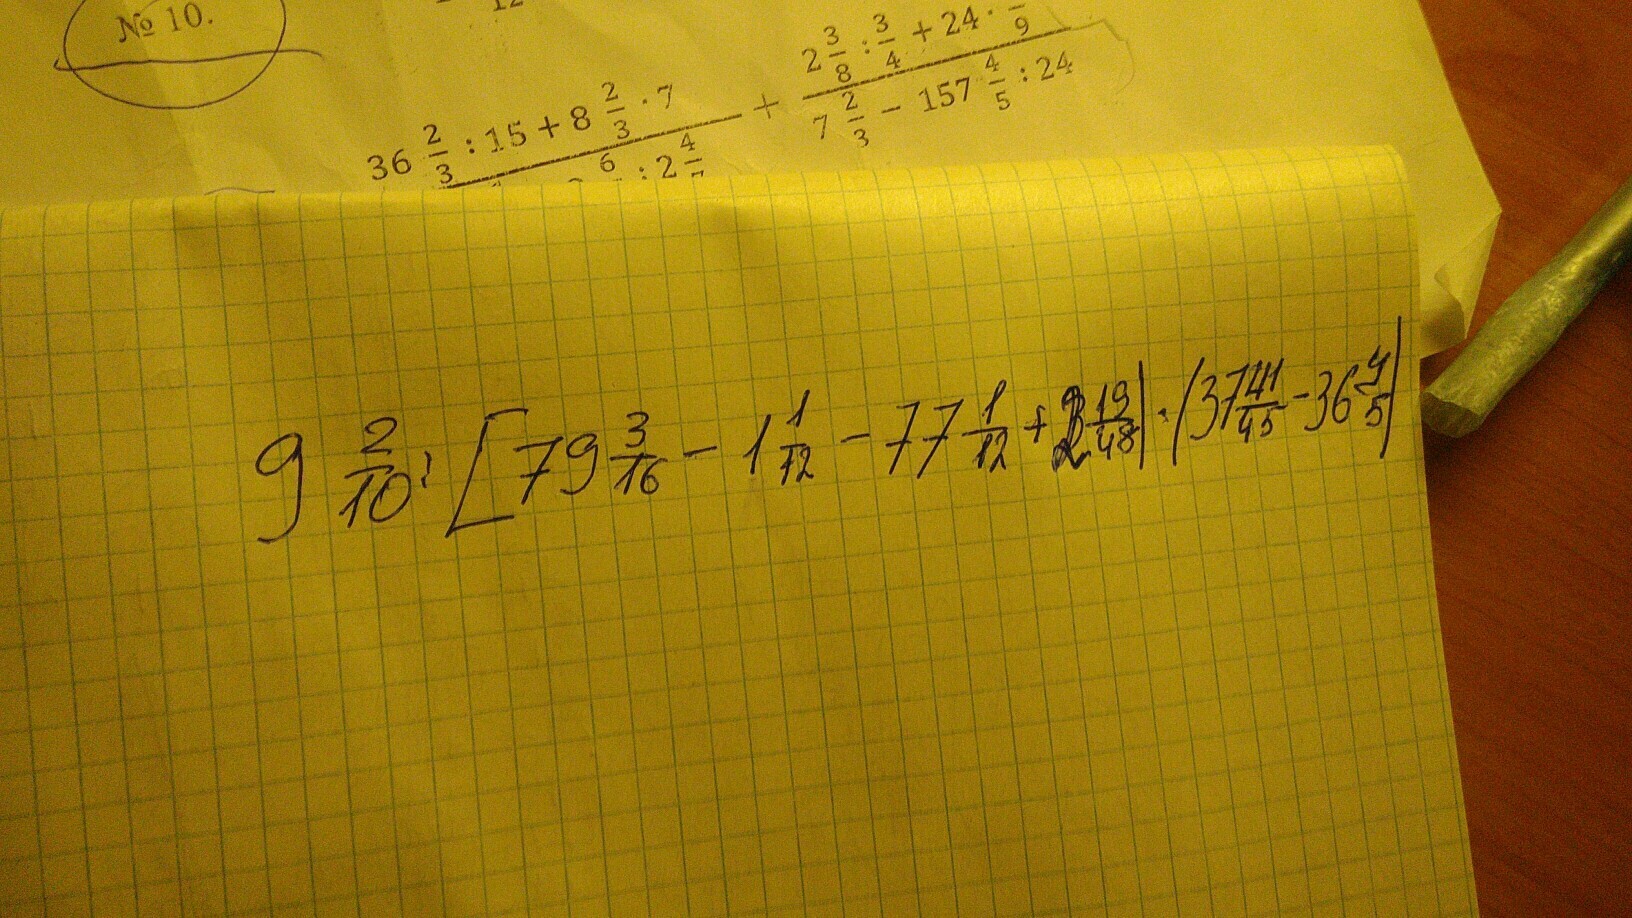 № 10.
12
36 2/3 : 15 + 8 2/3 · 7
+
2 3/8 : 3/4 + 24 · /9
7 2/3 − 157 4/5 : 24
6 : 2 4/
9 2/10 : [79 3/16 − 1 1/12 − 77 1/12 + 2 19/48) · (37 41/45 − 36 4/5)